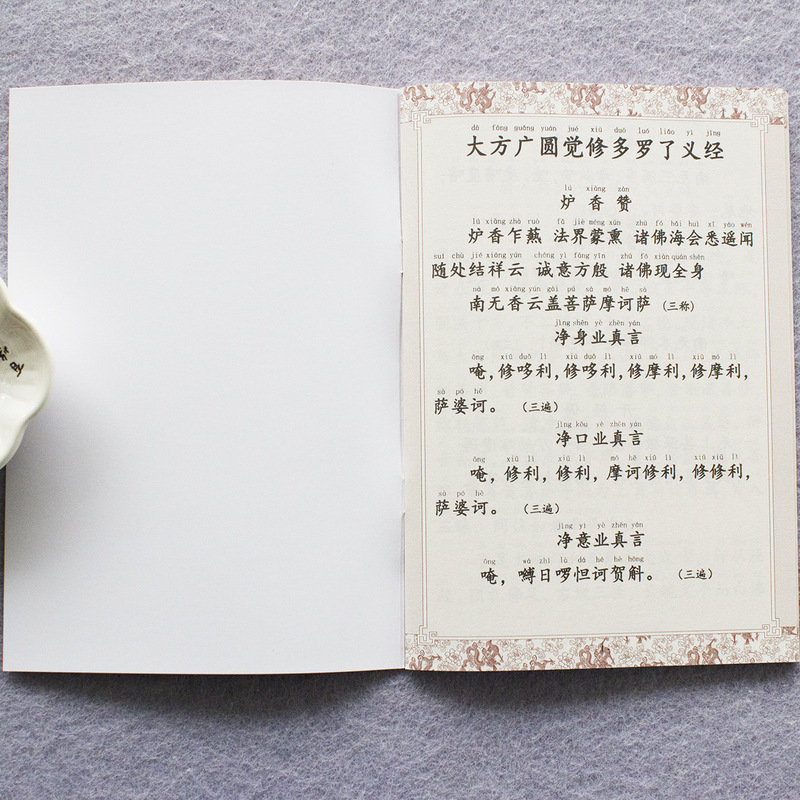 dà fāng guǎng yuán jué xiū duō luó liǎo yì jīng
大方广圆觉修多罗了义经
lú xiāng zàn
炉香赞
lú xiāng zhà ruò fǎ jiè méng xūn zhū fó hǎi huì xī yáo wén
炉香乍爇 法界蒙熏 诸佛海会悉遥闻
suí chù jié xiáng yún chéng yì fāng yīn zhū fó xiàn quán shēn
随处结祥云 诚意方殷 诸佛现全身
ná mó xiāng yún gài pú sà mó hē sà
南无香云盖菩萨摩诃萨(三称)
jìng shēn yè zhēn yán
净身业真言
ōng xiū duō lì xiū duō lì xiū mó lì xiū mó lì
唵,修哆利,修哆利,修摩利,修摩利,
sà pó hē
萨婆诃。(三遍)
jìng kǒu yè zhēn yán
净口业真言
ōng xiū lì xiū lì mó hē xiū lì xiū xiū lì
唵,修利,修利,摩诃修利,修修利,
sà pó hē
萨婆诃。(三遍)
jìng yì yè zhēn yán
净意业真言
ōng wā zhī lā dá hē hè hōng
唵,嚩日啰怛诃贺斛。(三遍)